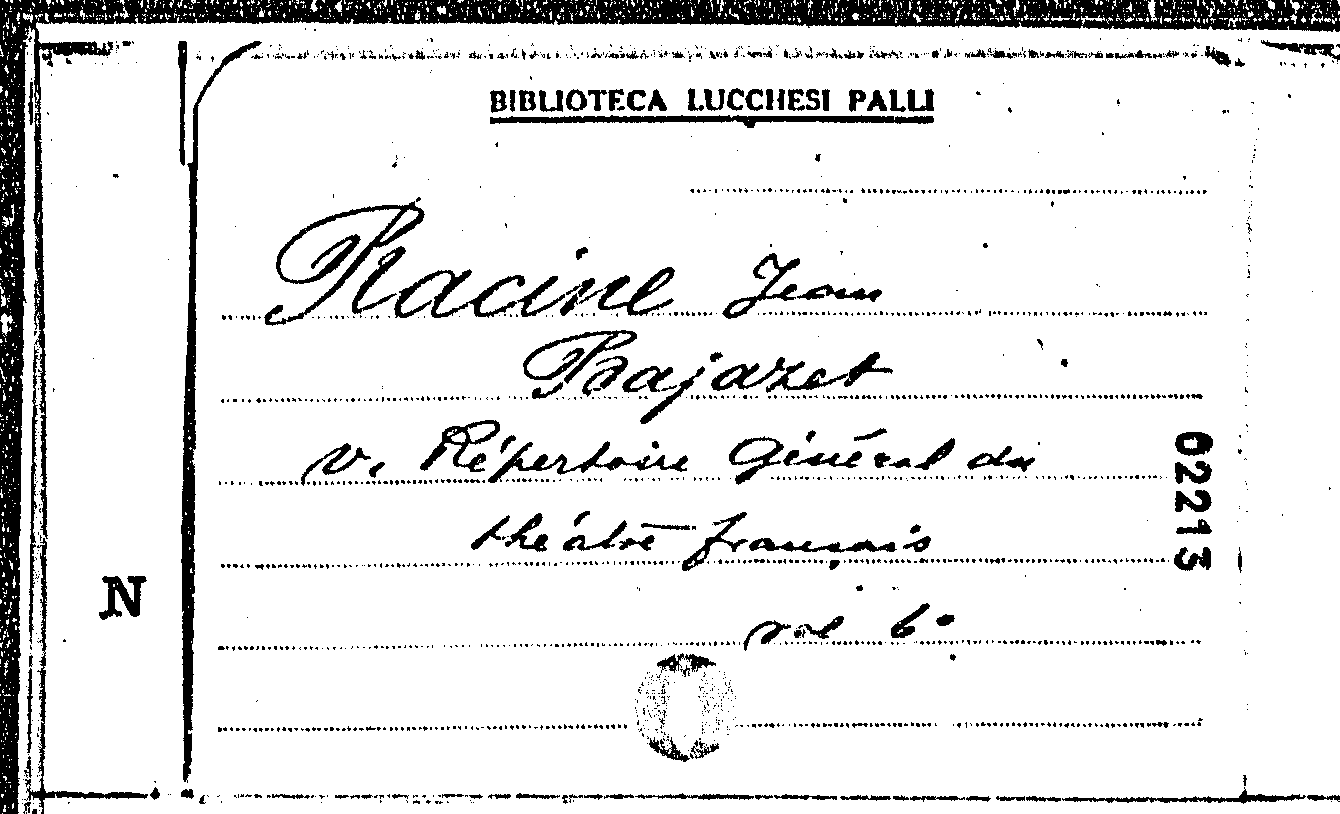 BIBLIOTECA LUCCHESI PALLI
Racine Jean
Bajazet
v. Répertoire Général du
théâtre français
vol 6°
02213
N